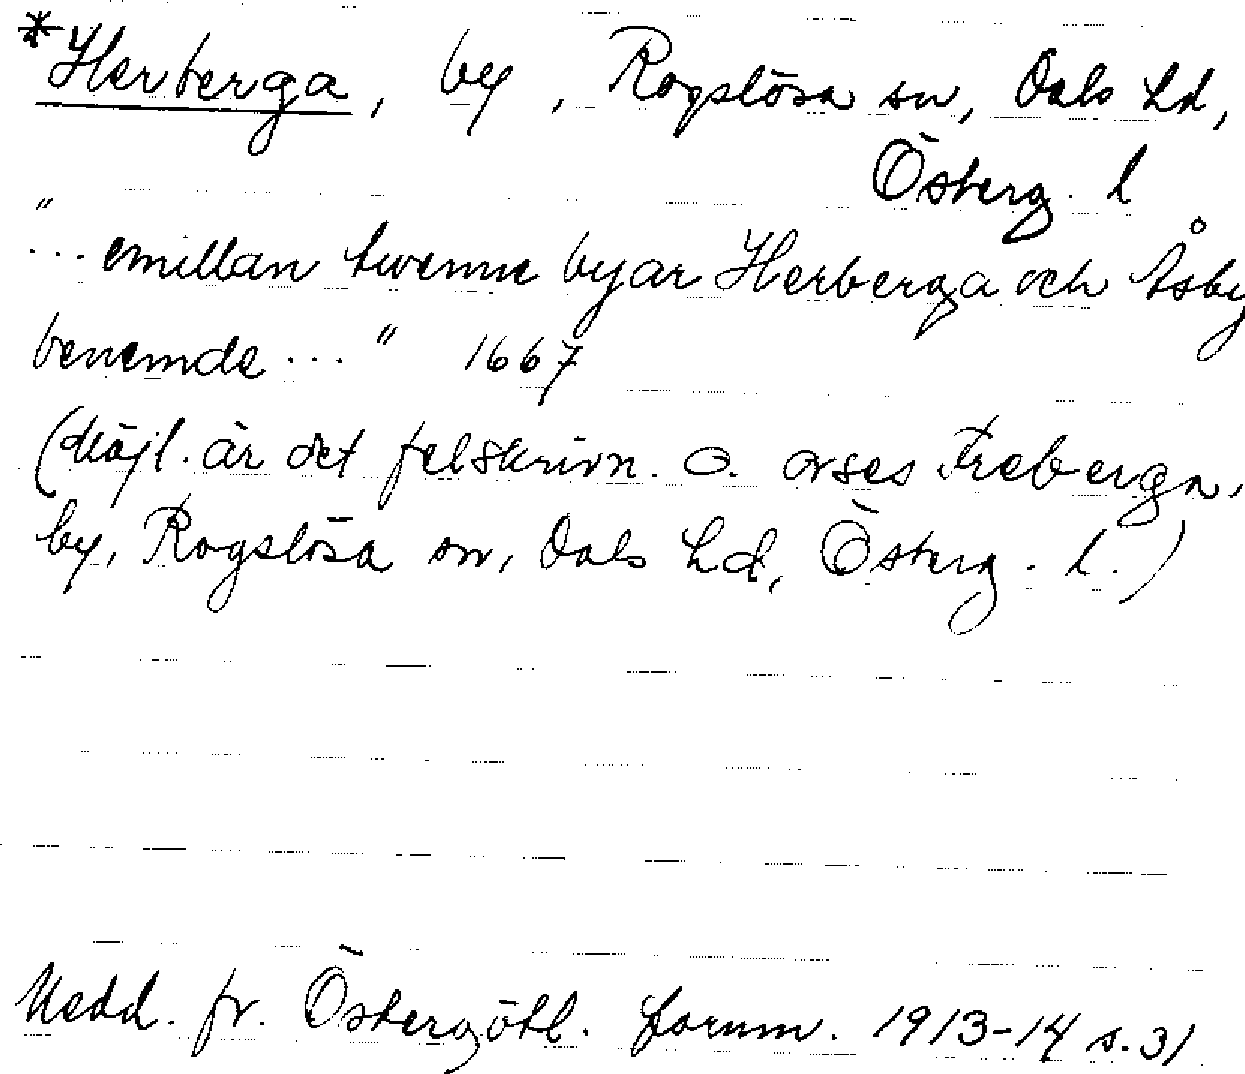 *Herberga, by, Rogslösa sn, Dals hd,
Österg. l
"... emillan twenne byar Herberga och Åsby
benemde ..." 1667
(Möjl. är det felskrivn. o. avses Freberga,
by, Rogslösa sn, Dals hd, Österg. l.)
Medd. fr. Östergötl. fornm. 1913-14 s. 31